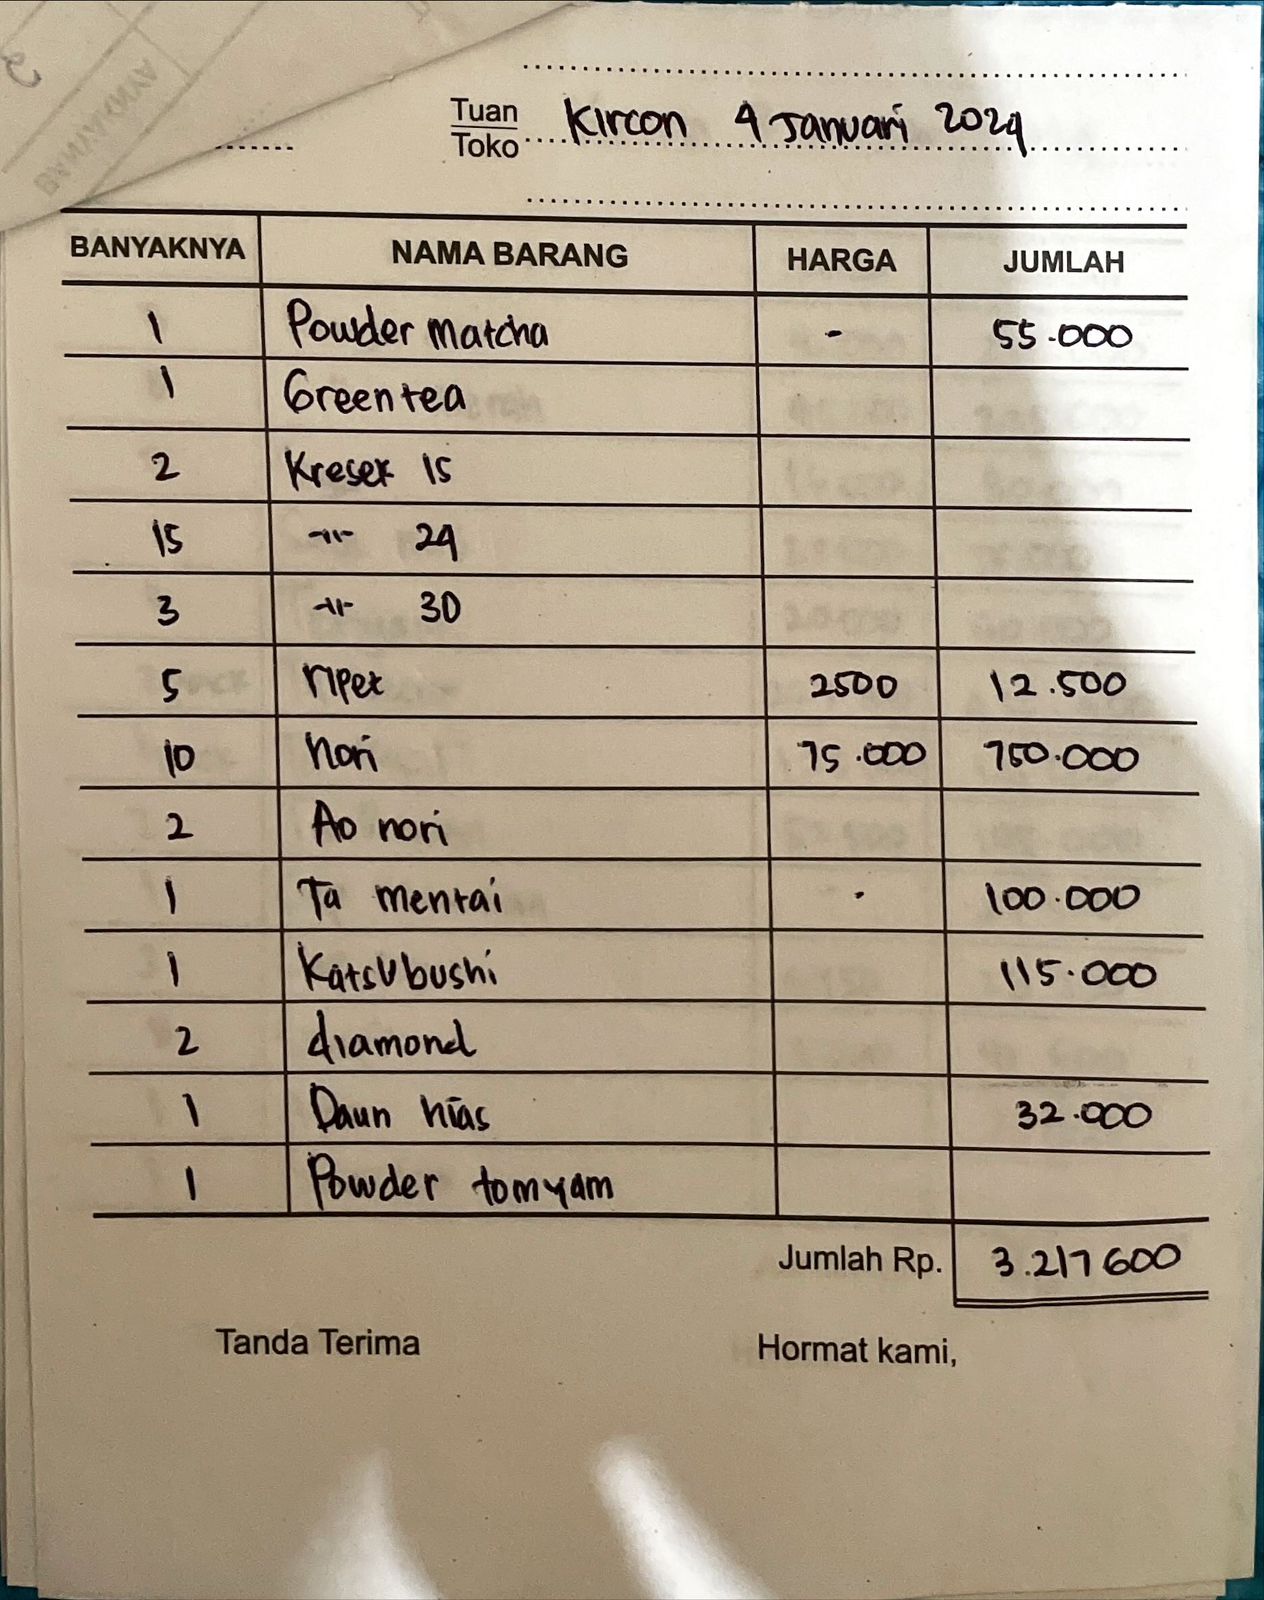 Tuan
Toko
Kircon 4 Januari 2024
BANYAKNYA NAMA BARANG HARGA JUMLAH
1 Powder Matcha - 55.000
1 Green tea
2 Kresek 15
15 -11- 24
3 -11- 30
5 ripet 2500 12.500
10 Nori 75.000 750.000
2 Ao nori
1 Ta mentai - 100.000
1 Katsubushi 115.000
2 diamond
1 Daun hias 32.000
1 Powder tomyam
Jumlah Rp. 3.217600
Tanda Terima Hormat kami,